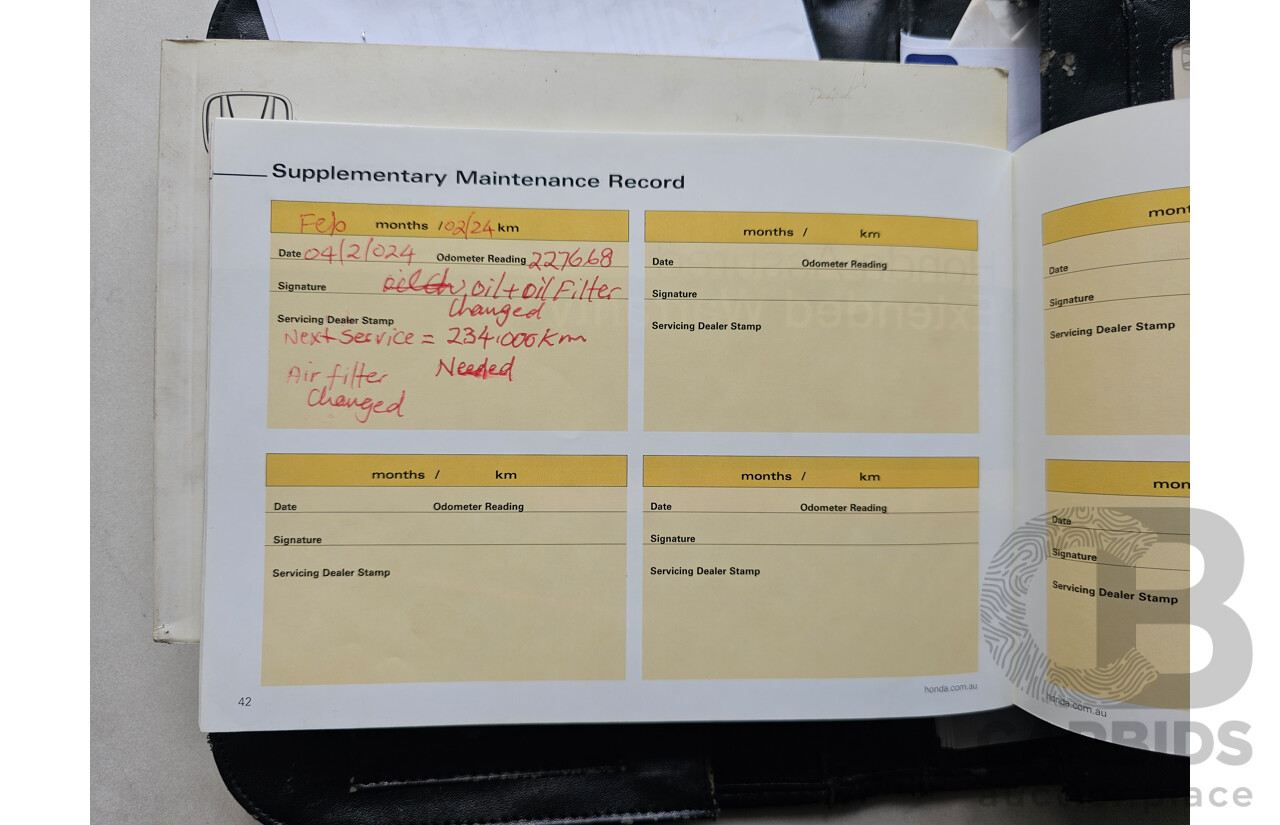 Supplementary Maintenance Record
Feb months / 02/24 km
Date 04/2/024 Odometer Reading 227668
Signature oil Ch, oil + oil Filter
Changed
Servicing Dealer Stamp
Next Service = 234,000 Km
Air filter Needed
Changed
months / km
Date Odometer Reading
Signature
Servicing Dealer Stamp
months / km
Date Odometer Reading
Signature
Servicing Dealer Stamp
months / km
Date Odometer Reading
Signature
Servicing Dealer Stamp
42
honda.com.au
mont
Date
Signature
Servicing Dealer Stamp
mon
Date
Signature
Servicing Dealer Stamp
honda.com.au
CARBIDS
auctionplace